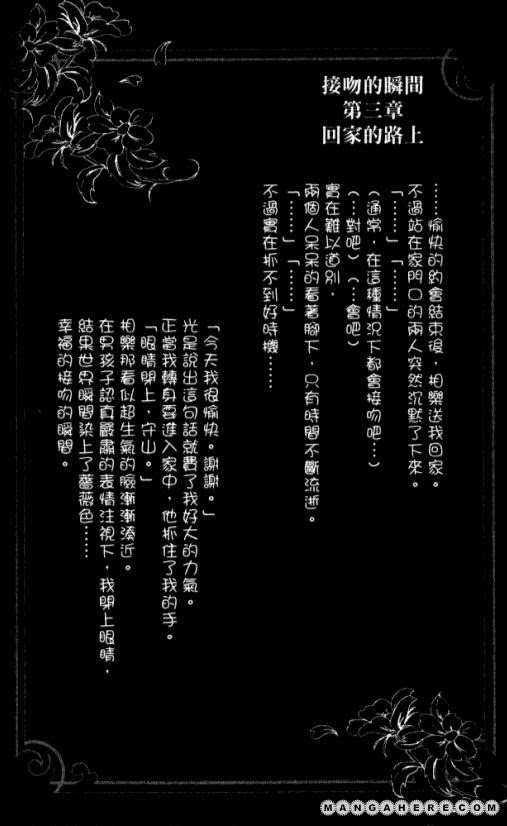 接吻的瞬間
第三章
回家的路上
……愉快的約會結束後，相樂送我回家。
不過站在家門口的兩人突然沉默了下來。
「……」「……」
（通常，在這種情況下都會接吻吧…）
（…對吧）（…會吧）
實在難以道別，
兩個人呆呆的看著腳下，只有時間不斷流逝。
「……」「……」
不過實在抓不到好時機……
「今天我很愉快。謝謝。」
光是說出這句話就費了我好大的力氣。
正當我轉身要進入家中，他抓住了我的手。
「眼睛閉上，守山。」
相樂那看似超生氣的臉漸漸湊近。
在男孩子認真嚴肅的表情注視下，我閉上眼睛，
結果世界瞬間染上了薔薇色……
幸福的接吻的瞬間。
MANGAHERE.COM